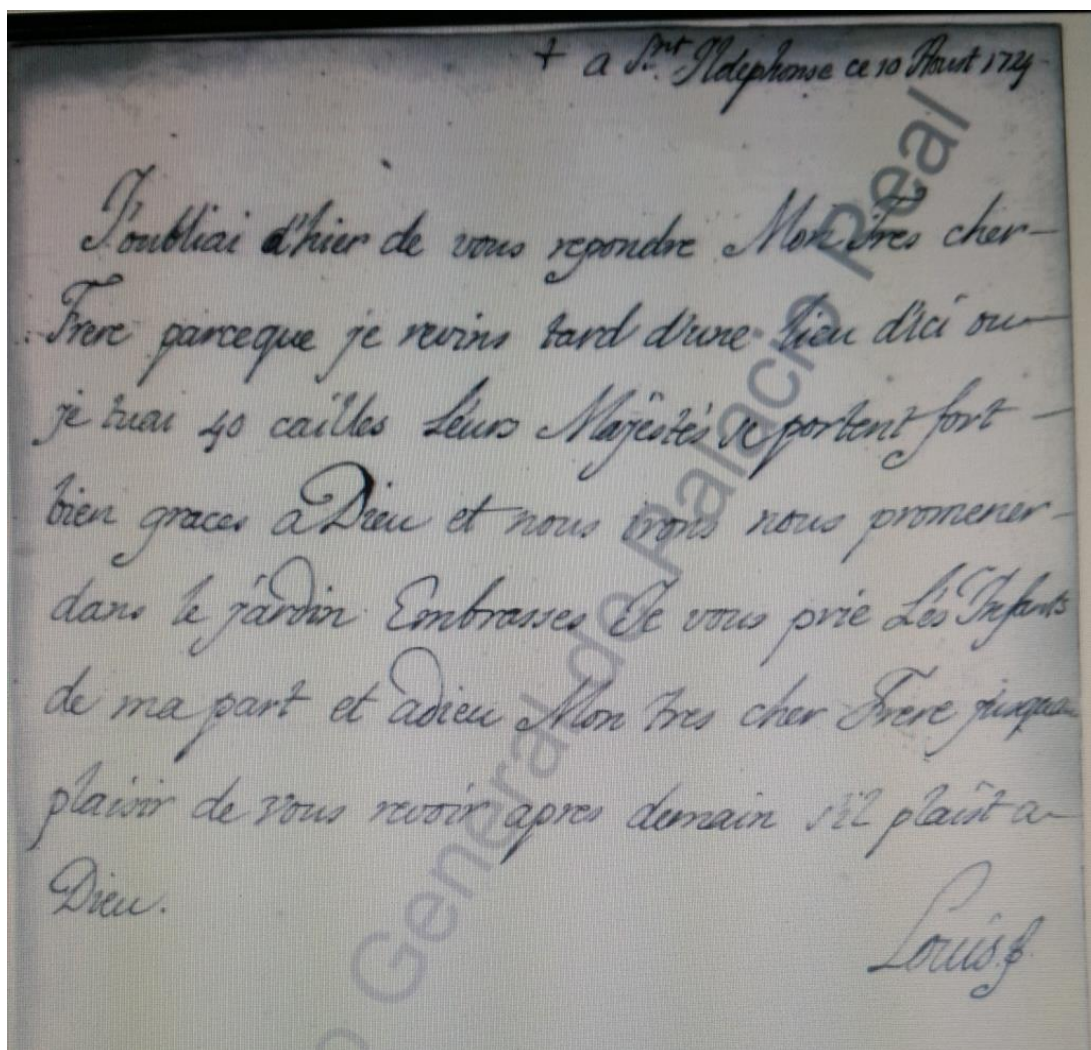 + a S.nt Ildephonse ce 10 Aoust 1724
J'oubliai d'hier de vous repondre Mon Tres cher-
Frere parceque je revins tard d'une lieu d'ici ou-
je tuai 40 cailles Léurs Majéstés se portent fort -
bien graces a Dieu et nous irons nous promener-
dans le jardin Embrasses Je vous prie Lés Infants
de ma part et adieu Mon tres cher Frere jusquau
plaisir de vous revoir apres demain s'il plaist a-
Dieu.
Louis
General de Palacio Real